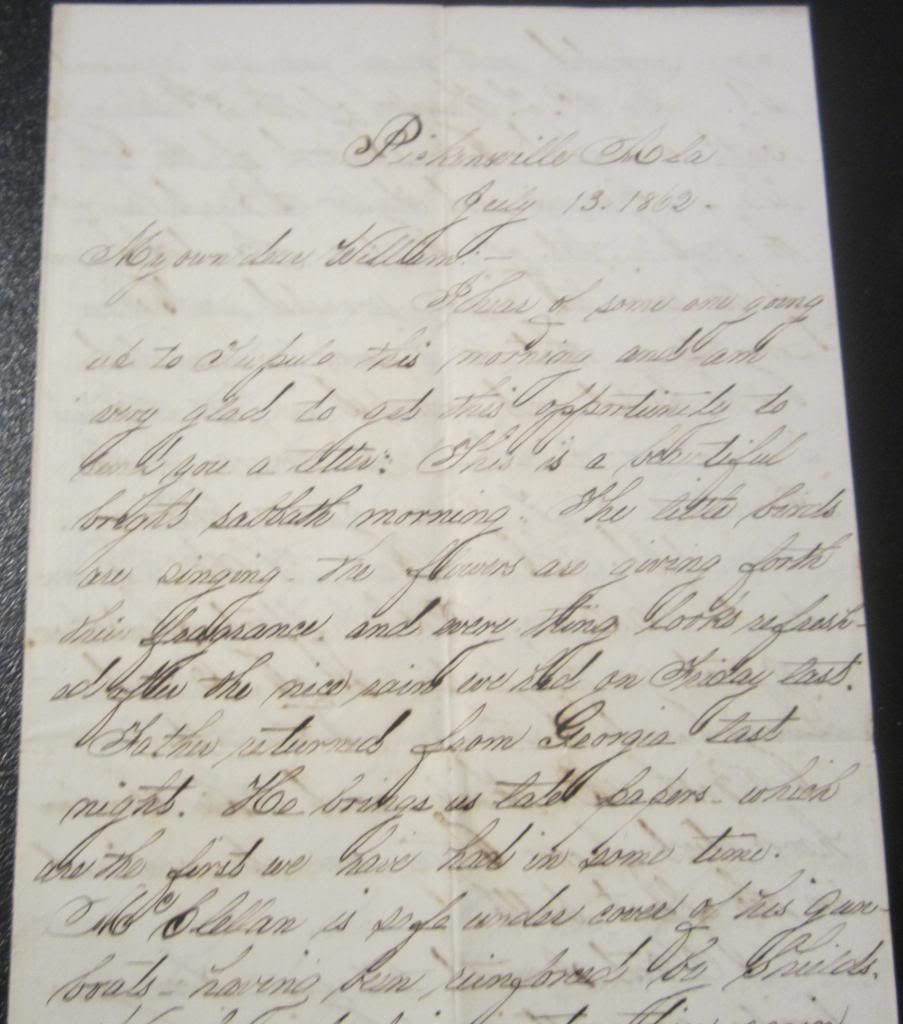 Pickensville Ala
July 13. 1862.
My own dear William. —
I hear of some one going
up to Tupelo this morning and am
very glad to get this opportunity to
send you a letter. This is a beautiful
bright sabbath morning. The little birds
are singing. the flowers are giving forth
their fragrance and every thing looks refresh-
ed after the nice rain we had on Friday last.
Father returned from Georgia last
night. He brings us late papers - which
are the first we have had in some time.
McClellan is safe under cover of his gun-
boats - having been reinforced by Shields.